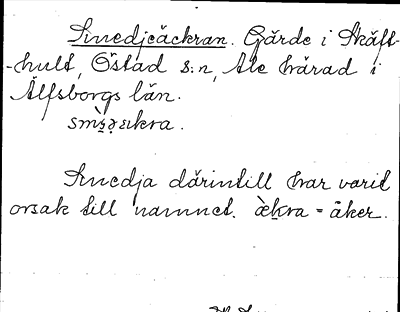 Smedjeäckran. Gärde i Skäft-
-hult, Östad s:n, Ale härad i
Älfsborgs län.
Smedja därintill har varit
orsak till namnet. æ̀kra = åker.